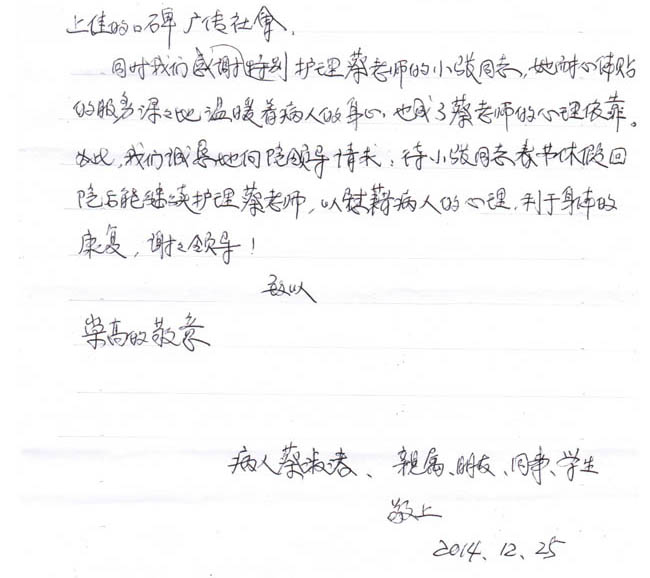 上佳的口碑广传社会。
同时我们感谢特别护理蔡老师的小张同志,她耐心体贴
的服务深々地温暖着病人的身心,也成了蔡老师的心理依靠。
如此,我们诚恳地向院领导请求:待小张同志春节休假回
院后能继续护理蔡老师,以慰藉病人的心理,利于身体的
康复,谢々领导!
致以
崇高的敬意
病人蔡淑春、亲属、朋友、同事、学生
敬上
2014、12、25